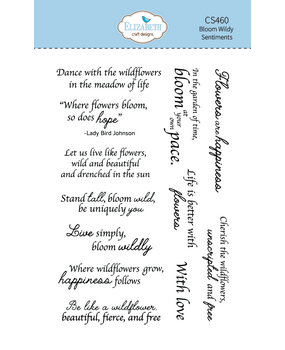 ELIZABETH
craft designs
CS460
Bloom Wildy
Sentiments
Dance with the wildflowers
in the meadow of life
"Where flowers bloom,
so does hope"
-Lady Bird Johnson
Let us live like flowers,
wild and beautiful
and drenched in the sun
Stand tall, bloom wild,
be uniquely you
Live simply,
bloom wildly
Where wildflowers grow,
happiness follows
Be like a wildflower.
beautiful, fierce, and free
In the garden of time,
bloom at your own pace.
Life is better with
flowers
With love
Flowers are happiness
Cherish the wildflowers,
unscripted and free